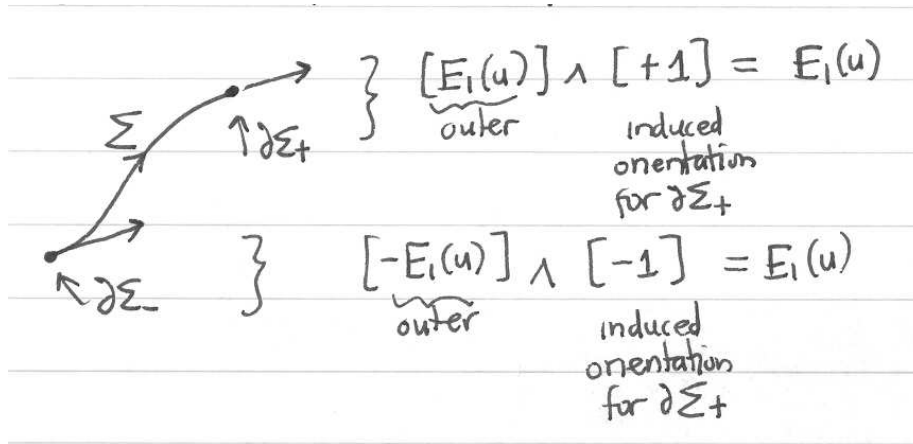 [E₁(u)] ∧ [+1] = E₁(u)
outer
induced
orientation
for ∂Σ₊
Σ
↑∂Σ₊
[-E₁(u)] ∧ [-1] = E₁(u)
↖∂Σ₋
outer
induced
orientation
for ∂Σ₊